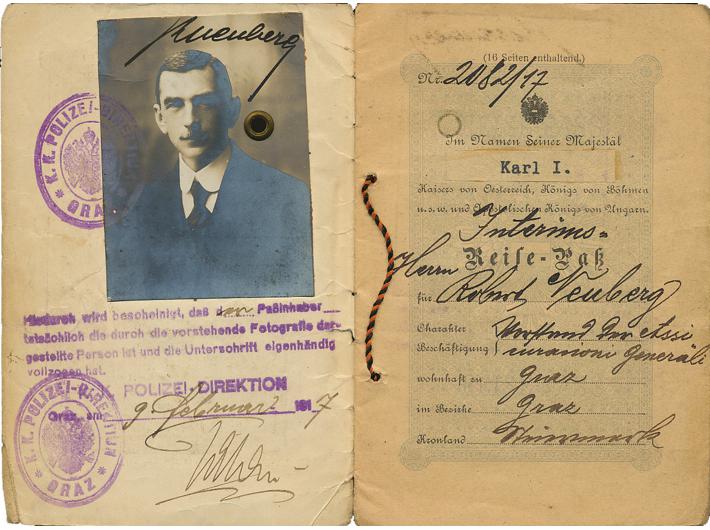 RNeuberg
K.K. POLIZEI-DIREKTION
* GRAZ *
Hiedurch wird bescheinigt, daß der Paßinhaber
tatsächlich die durch die vorstehende Fotografie dar-
gestellte Person ist und die Unterschrift eigenhändig
vollzogen hat.
POLIZEI-DIREKTION
Graz, am 9 Februar 1917
K.K. POLIZEI-DIREKTION
* GRAZ *
(16 Seiten enthaltend.)
Nr. 2082/17
Im Namen Seiner Majestät
Karl I.
Kaisers von Oesterreich, Königs von Böhmen
u. s. w. und Apostolischen Königs von Ungarn.
Interims=
Reise-Paß
Herrn
für Robert Neuberg
Charakter Vorstand der Assi
Beschäftigung curazioni Generali
wohnhaft zu Graz
im Bezirke Graz
Kronland Steiermark